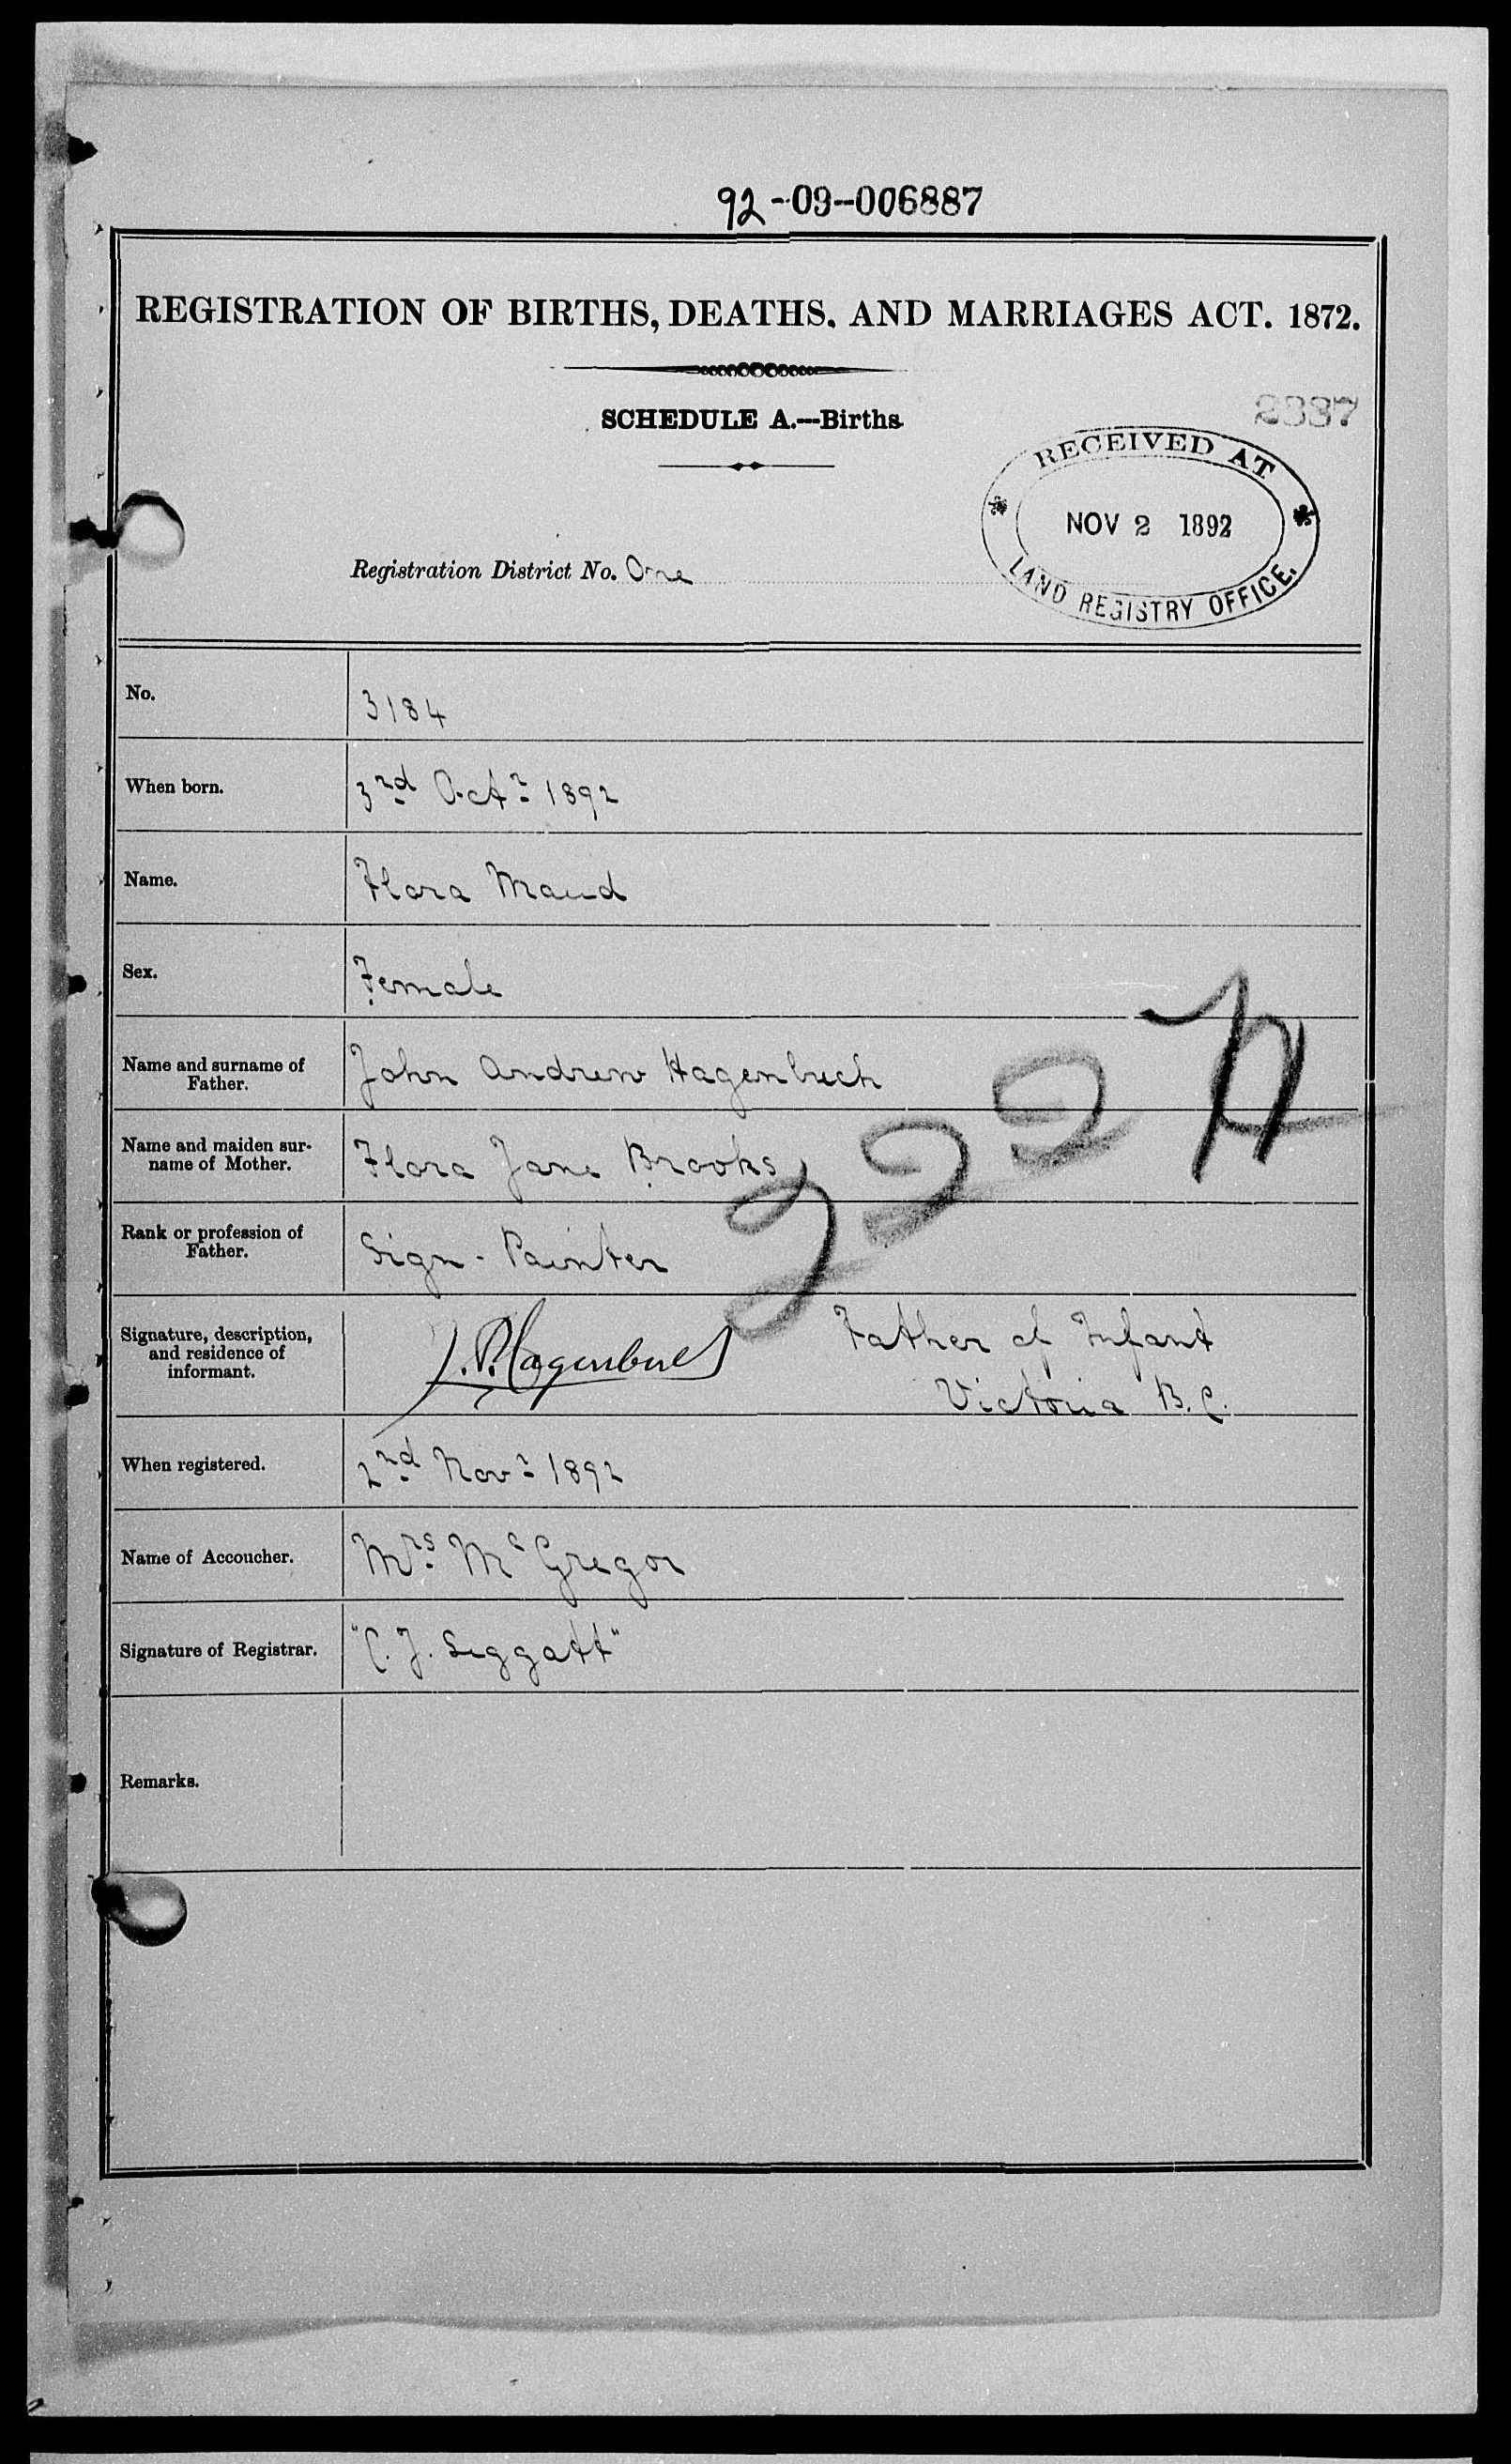 92-09-006887
REGISTRATION OF BIRTHS, DEATHS, AND MARRIAGES ACT. 1872.
SCHEDULE A.—Births.
2337
RECEIVED AT
NOV 2 1892
LAND REGISTRY OFFICE.
Registration District No. One
No.
3184
When born.
3rd Octr 1892
Name.
Flora Maud
Sex.
Female
Name and surname of
Father.
John Andrew Hagenbuch
Name and maiden sur-
name of Mother.
Flora Jane Brooks
Rank or profession of
Father.
Sign - Painter
Signature, description,
and residence of
informant.
J. A. Hagenbuch
Father of Infant
Victoria B.C.
When registered.
2nd Novr 1892
Name of Accoucher.
Mrs. McGregor
Signature of Registrar.
"C. J. Leggatt"
Remarks.